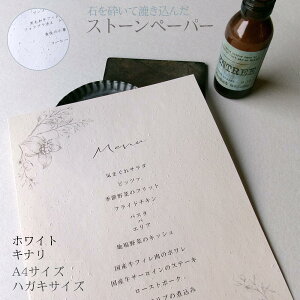 石を砕いて漉き込んだ
ストーンペーパー
ENTREE
Menu
気まぐれサラダ
ピッツァ
季節野菜のフリット
フライドチキン
パスタ
or
エリア
地場野菜のキッシュ
国産牛フィレ肉のポワレ
国産牛サーロインのステーキ
ローストポーク
の煮込み
ホワイト
キナリ
A4サイズ
ハガキサイズ